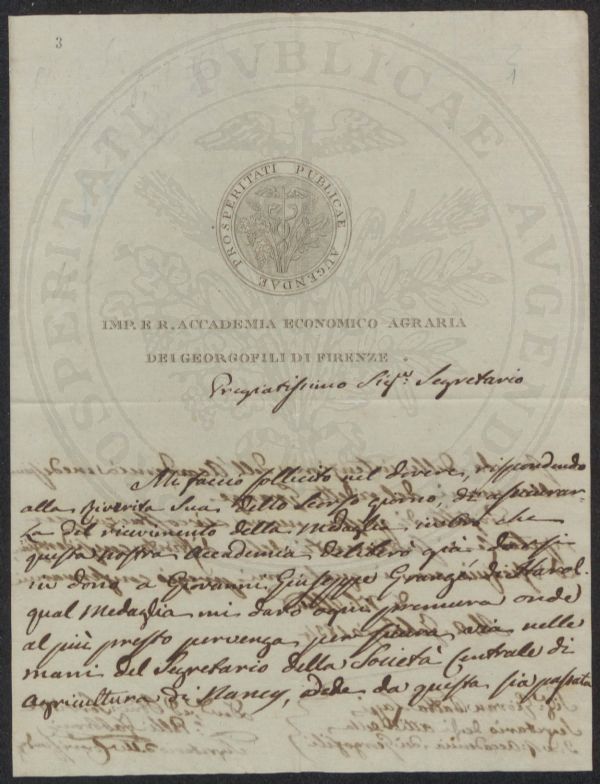 3
PROSPERITATI PUBLICAE AUGENDAE
IMP. E R. ACCADEMIA ECONOMICO AGRARIA
DEI GEORGOFILI DI FIRENZE.
Pregiatissimo Sigr. Segretario
Mi faccio sollecito nel dovere, rispondendo
alla riverita Sua dello scorso giorno, di assicurar-
La del ricevimento della Medaglia che
questa nostra Accademia deliberò già darsi
in dono a Giovanni Giuseppe Grangé di Harol.
qual Medaglia mi darò ogni premura onde
al più presto pervenga per sicura via nelle
mani del Segretario della Società Centrale di
Agricoltura di Nancy, da questa sia passata
PROSPERITATI PVBLICAE AVGENDAE